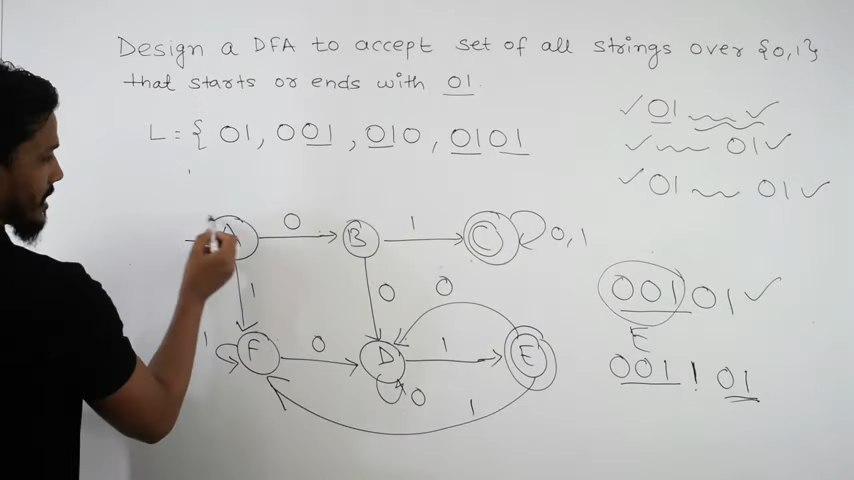 Design a DFA to accept set of all strings over {0,1}
that starts or ends with 01.
L = { 01, 001, 010, 0101
✓ 01 ✓
✓ 01 ✓
✓ 01 01 ✓
A 0 B 1 C 0,1
1 0 0
1 F 0 D 1 E
0 1
00101 ✓
E
001 1 01